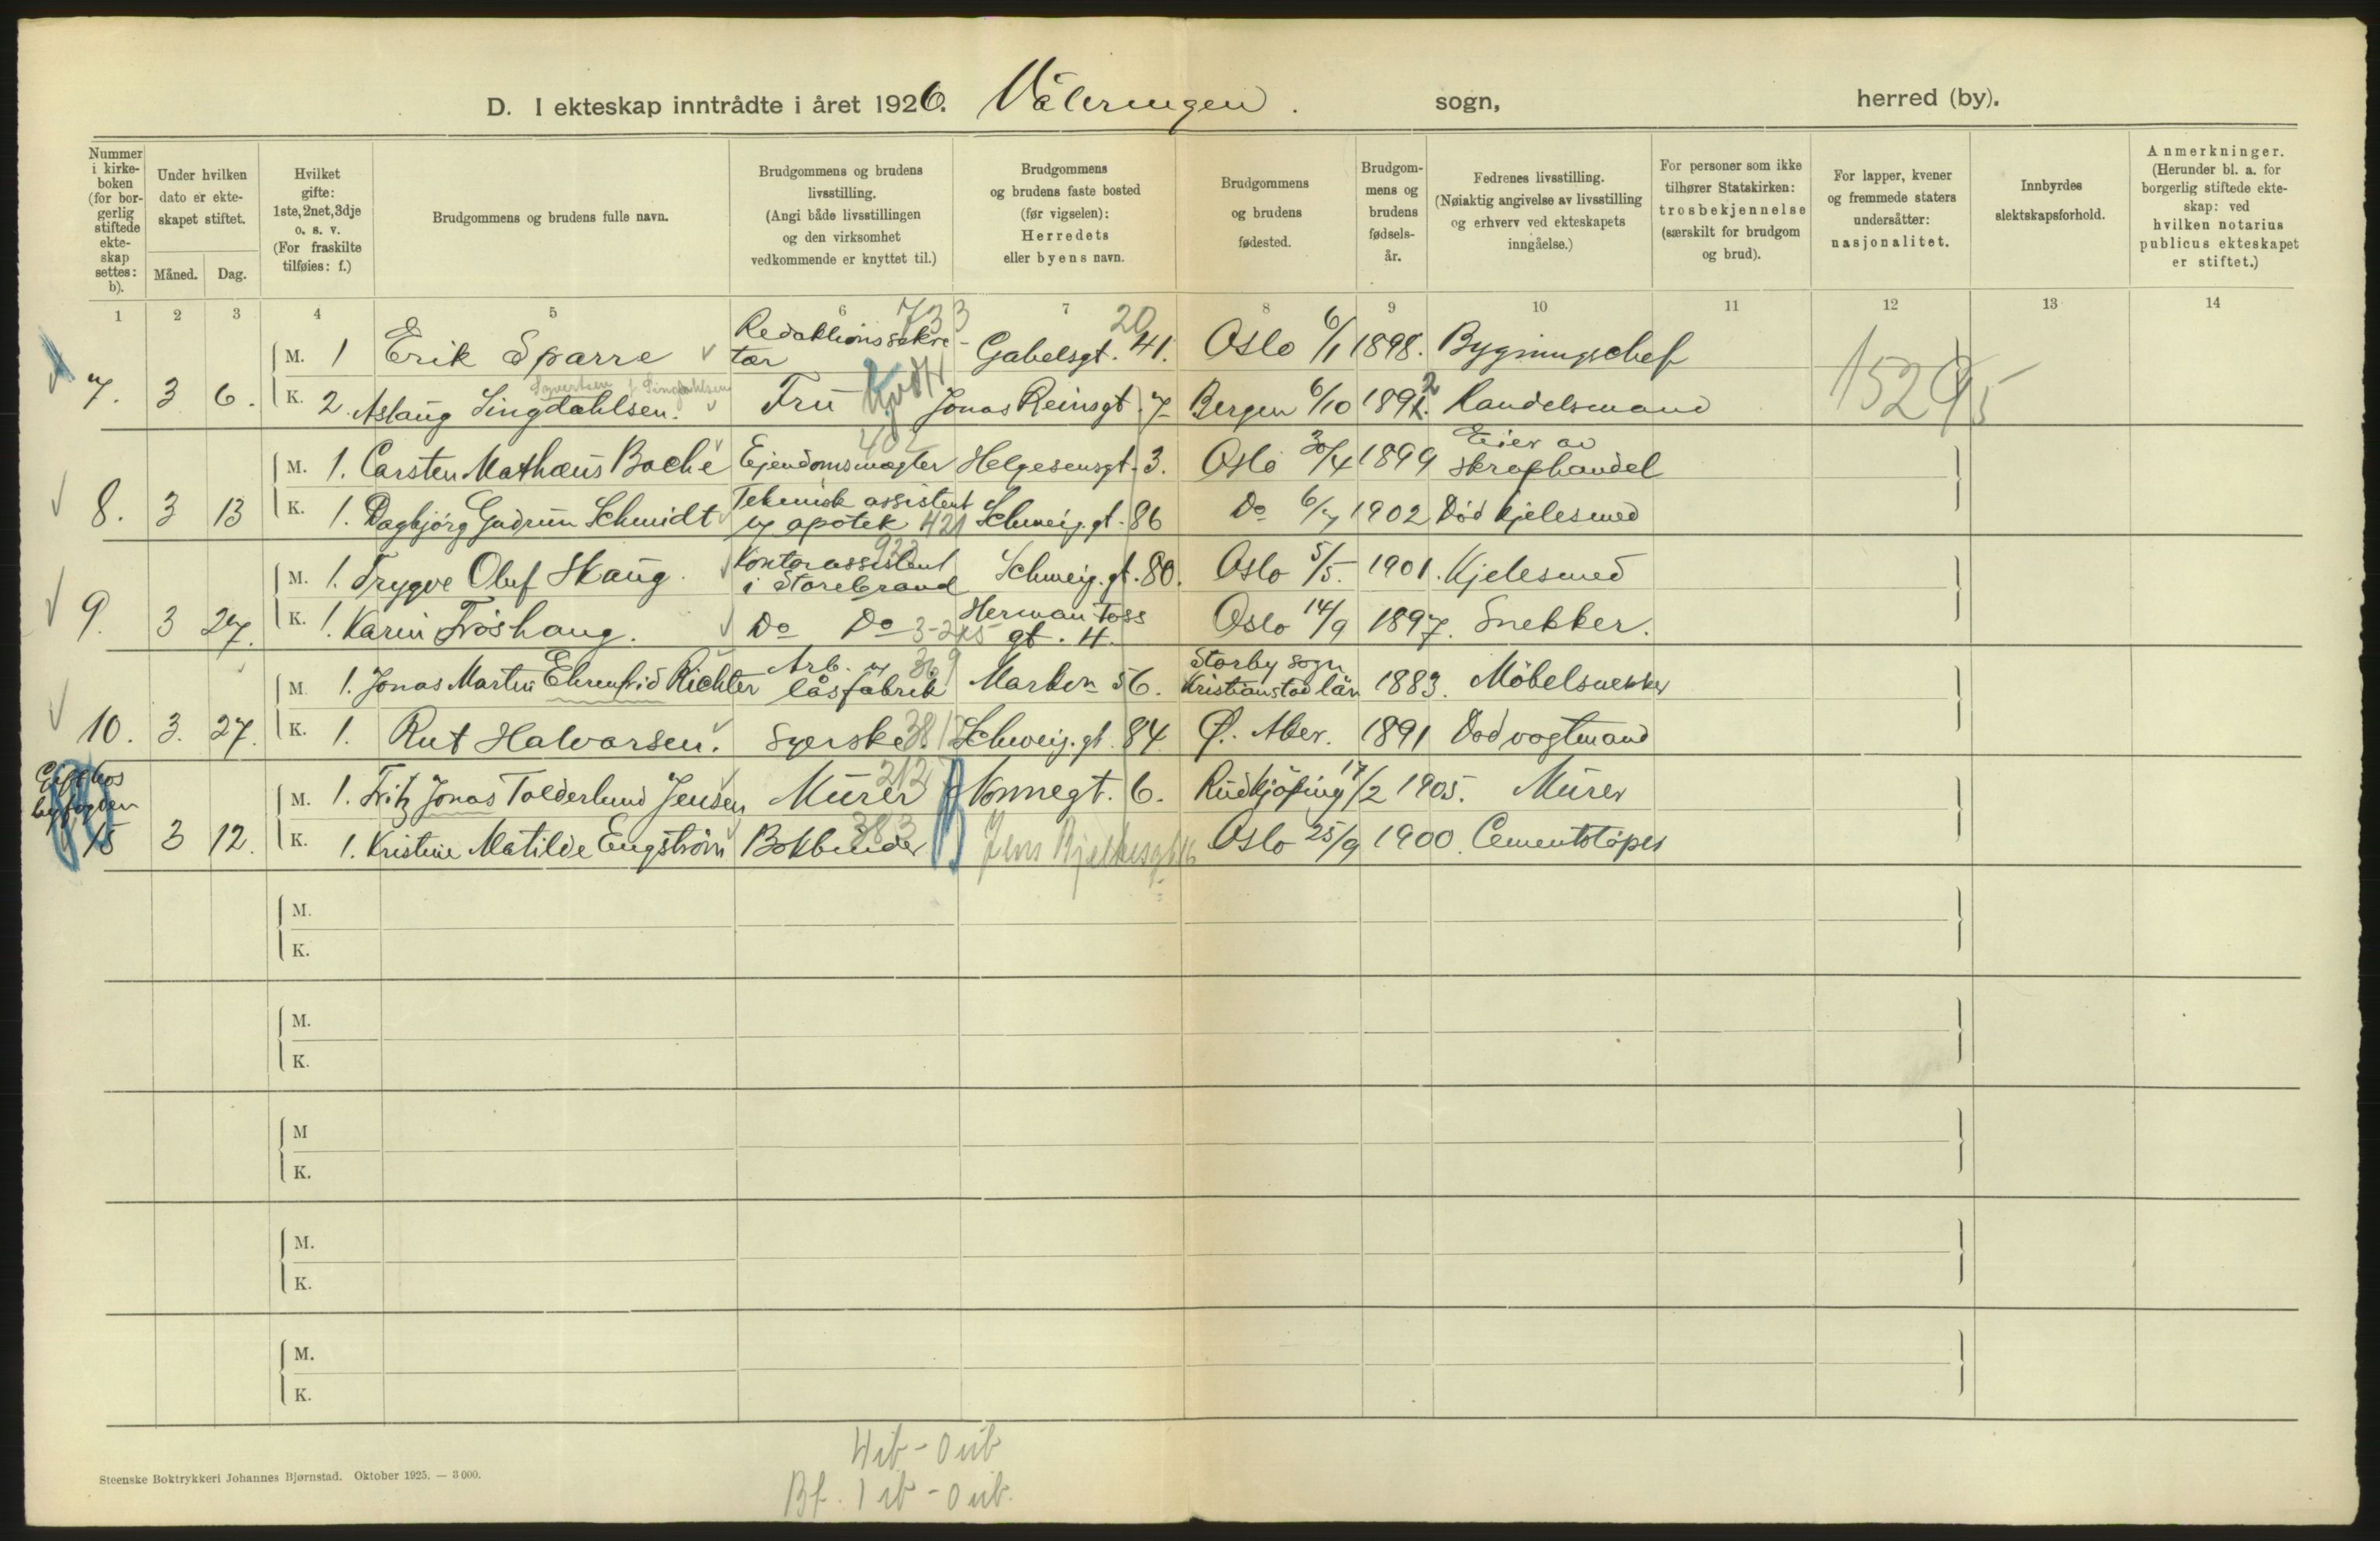 D. I ekteskap inntrådte i året 1926. Våleringen. sogn, herred (by).
Nummer i kirkeboken (for borgerlig stiftede ekteskap settes: b).
Under hvilken dato er ekteskapet stiftet.
Måned. Dag.
Hvilket gifte: 1ste, 2net, 3dje o. s. v. (For fraskilte tilføies: f.)
Brudgommens og brudens fulle navn.
Brudgommens og brudens livsstilling. (Angi både livsstillingen og den virksomhet vedkommende er knyttet til.)
Brudgommens og brudens faste bosted (før vigselen): Herredets eller byens navn.
Brudgommens og brudens fødested.
Brudgommens og brudens fødselsår.
Fedrenes livsstilling. (Nøiaktig angivelse av livsstilling og erhverv ved ekteskapets inngåelse.)
For personer som ikke tilhører Statskirken: trosbekjennelse (særskilt for brudgom og brud).
For lapper, kvener og fremmede staters undersåtter: nasjonalitet.
Innbyrdes slektskapsforhold.
Anmerkninger. (Herunder bl. a. for borgerlig stiftede ekteskap: ved hvilken notarius publicus ekteskapet er stiftet.)
1 2 3 4 5 6 7 8 9 10 11 12 13 14
733 20
M. 1 Erik Sparre Redaktionssekre-tær Gabelsgt. 41. Oslo 6/1 1898. Bygningschef
Syvertsen f. Singdahlsen
7. 3 6. K. 2. Aslaug Singdahlsen. Fru Jonas Reinsgt. 7 Bergen 6/10 1892 Handelsmand 15295
402
M. 1. Carsten Mathæus Baché Ejendomsmægler Helgesensgt. 3. Oslo 30/4 1899 Eier av skraphandel
8. 3 13 K. 1. Dagbjørg Gudrun Schmidt Teknisk assistent og apotek 421 Schweig.gt. 86 Do 6/7 1902 Död kjelesmed
M. 1. Trygve Oluf Skaug. Kontorassistent i Storebrand Schweig.gt. 80. Oslo 5/5. 1901. Kjelesmed
9. 3 27. K. 1. Karin Froshaug. Do Do 3-245 Herman Foss gt. 4. Oslo 14/9 1897. Snekker.
M. 1. Jonas Martin Ehrenfrid Richter Arb. og låsfabrik 369 Markv. 56. Storby sogn Kristianstad län 1883. Möbelsnekker
10. 3. 27. K. 1. Rut Halvorsen. Syerske 381 Schweig.gt. 84 Ø. Aker. 1891 Död vogtmand
Gift hos byfogden
M. 1. Fritz Jonas Tolderlund Jensen Murer 212 Nonnegt. 6. Rudkjøping 17/2 1905. Murer
15 3 12. K. 1. Kristine Matilde Engström Bokbinder 383 Jens Bjelkesgt 16 Oslo 25/9 1900. Cementstöper
M.
K.
M.
K.
M
K.
M.
K.
M.
K.
4 ib - 0 uib
Bf. 1 ib - 0 uib.
Steenske Boktrykkeri Johannes Bjørnstad. Oktober 1925. — 3000.